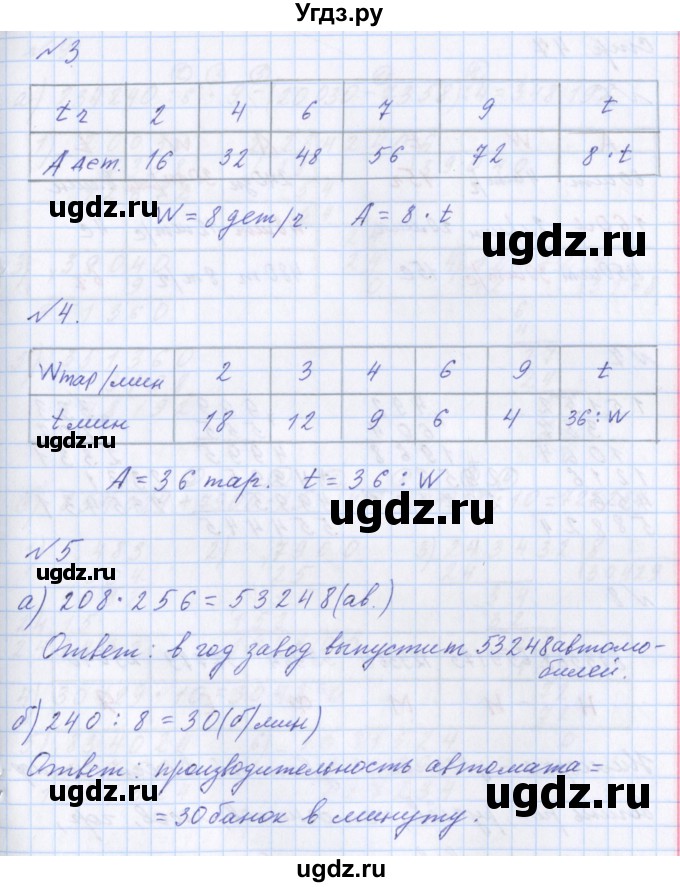 Угдз.ру
№3
t ч 2 4 6 7 9 t
A дет. 16 32 48 56 72 8·t
ugdz.ru
W = 8 дет/ч. A = 8·t
ugdz.ru
№4.
W тар/мин 2 3 4 6 9 t
t мин 18 12 9 6 4 36:W
ugdz.ru
A = 36 тар. t = 36 : W
ugdz.ru
№5
а) 208·256 = 53248(ав.)
ugdz.ru
Ответ: в год завод выпустит 53248 автомо-
билей.
ugdz.ru
б) 240 : 8 = 30(б/мин)
Ответ: производительность автомата =
ugdz.ru
ugdz.ru
= 30 банок в минуту.
ugdz.ru